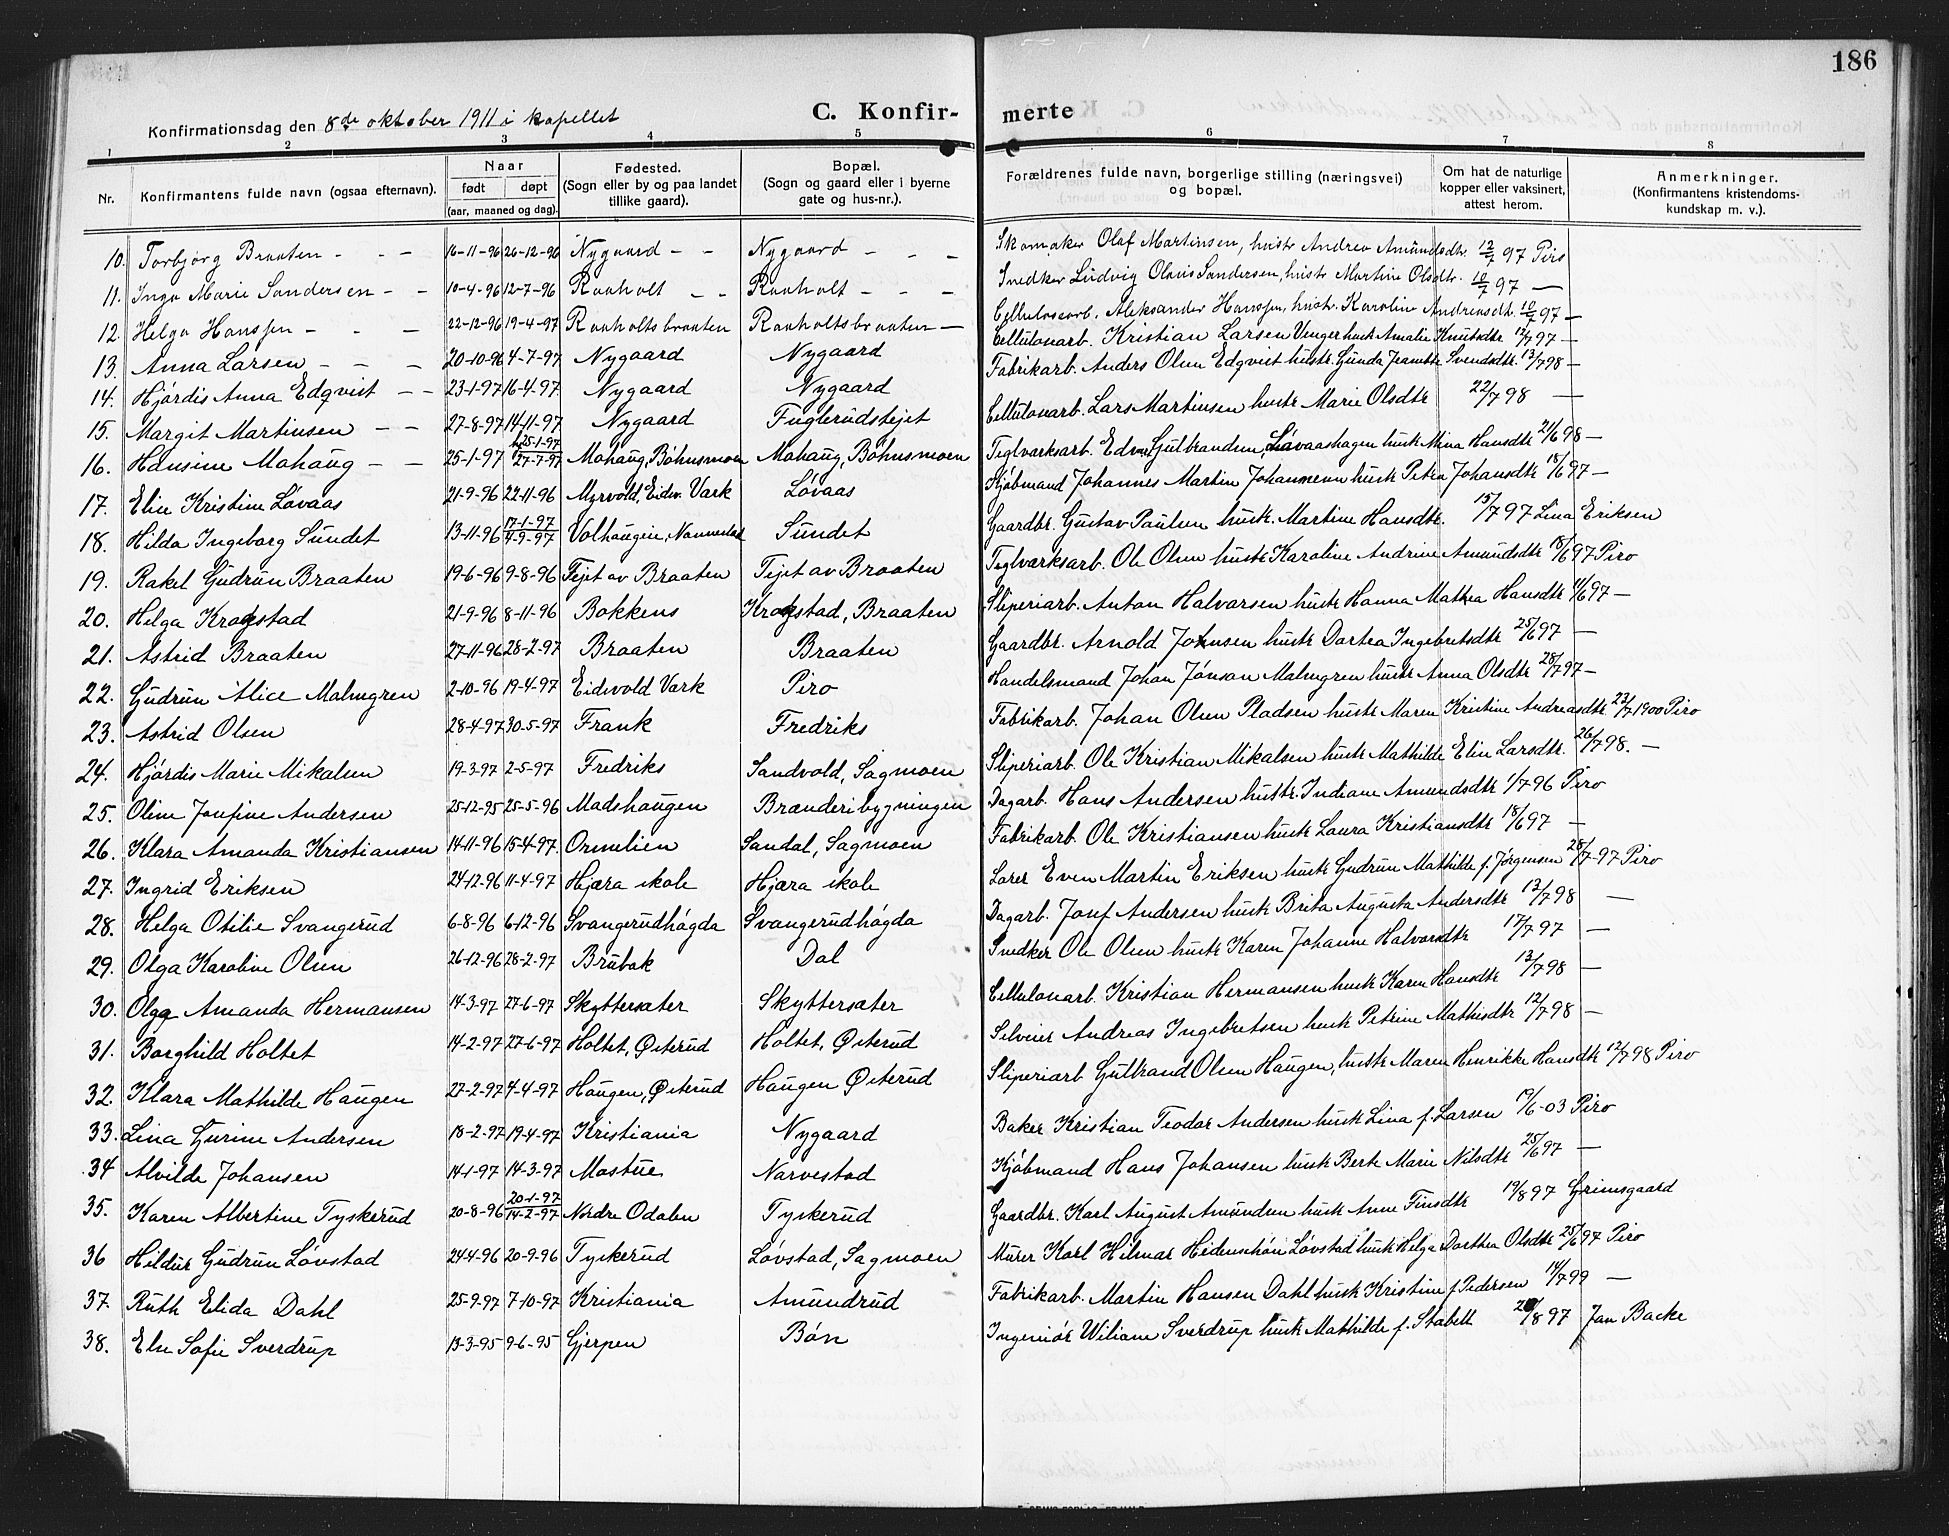 186
Konfirmationsdag den 8de oktober 1911 i kapellet
C. Konfir- merte
1 2 3 4 5 6 7 8
Nr. Konfirmantens fulde navn (ogsaa efternavn). Naar født døpt (aar, maaned og dag). Fødested. (Sogn eller by og paa landet tillike gaard). Bopæl. (Sogn og gaard eller i byerne gate og hus-nr.). Forældrenes fulde navn, borgerlige stilling (næringsvei) og bopæl. Om hat de naturlige kopper eller vaksinert, attest herom. Anmerkninger. (Konfirmantens kristendoms-kundskap m. v.).
10. Torbjørg Braaten - - - 16-11-96 26-12-96 Nygaard - - Nygaard - - - Skomaker Olaf Martinsen, hustr Andrea Amundsdtr. 12/7 97 Piro
11. Inga Marie Sandersen - - 10-4-96 12-7-96 Raaholt - - Raaholt - - - Snedker Ludvig Olavis Sandersen, hustr Martine Olsdtr. 10/7 97 —
12. Helga Hanssen - - - 22-12-96 19-4-97 Raaholtsbraaten Raaholtsbraaten - Cellulosearb. Aleksander Hanssen, hustr. Karolin Andreasdt. 10/7 97 —
13. Anna Larsen - - - 20-10-96 4-7-97 Nygaard Nygaard Cellulosearb. Kristian Larsen Venger hustr Amalie Knutsdtr 12/7 97 —
14. Hjørdis Anna Edqvist - - 23-1-97 16-4-97 Nygaard Nygaard Fabrikarb. Anders Olsen Edqvist hustr. Gunda Jeanette Svendsdtr. 13/7 98 —
15. Margit Martinsen - - 27-8-97 14-11-97 Nygaard Fuglerudstejet Cellulosearb. Lars Martinsen hustr Marie Olsdtr 22/7 98 —
16. Hansine Mohaug - - 25-1-97 25-1-97 27-7-97 Mohaug, Bøhnsmoen Mohaug, Bøhnsmoen Teglverksarb. Edv. Gulbrandsen, Løvaashagen hustr Mina Hansdtr 21/6 98 —
17. Elise Kristine Løvaas 21-9-96 22-11-96 Myrvold, Eidsv. Værk Løvaas Kjøbmand Johannes Martin Johannesen hustr Petra Johansdtr 15/6 97 —
18. Hilda Ingeborg Sundet 13-11-96 17-1-97 4-9-97 Volhaugen, Nannestad Sundet Gaardbr. Gustav Paulsen hustr. Martine Hansdtr. 15/7 97 Lina Eriksen
19. Rakel Gudrun Braaten 19-6-96 9-8-96 Tejet av Braaten Tejet av Braaten Teglværksarb. Ole Olsen hustr Karoline Andrine Amundsdtr 18/6 97 Piro
20. Helga Krogstad 21-9-96 8-11-96 Bokkens Krogstad, Braaten Sliperiarb. Anton Halvorsen hustr Hanna Mathea Hansdtr 11/6 97 —
21. Astrid Braaten 27-11-96 28-2-97 Braaten Braaten Gaardbr. Arnold Johnsen hustr Dortea Ingebretsdtr 25/6 97 —
22. Gudrun Alice Malmgren 2-10-96 19-4-97 Eidsvold Værk Piro Handelsmand Johan Jónson Malmgren hustr Anna Olsdtr 28/7 97 —
23. Astrid Olsen 28-4-97 30-5-97 Frank Fredriks Fabrikarb. Johan Olsen Pladsen hustr Maren Kristine Andreasdtr 23/7 1900 Piro
24. Hjørdis Marie Mikalsen 19-3-97 2-5-97 Fredriks Sandvold, Sagmoen Sliperiarb. Ole Kristian Mikalsen hustr Mathilde Elise Larsdtr. 26/7 98. —
25. Oline Josefine Andersen 25-12-95 25-5-96 Madshaugen Brænderibygningen Dagarb. Hans Andersen hustr. Indiane Amundsdtr 1/7 96 Piro
26. Klara Amanda Kristiansen 14-11-96 15-4-97 Ormlien Sandal, Sagmoen Fabrikarb. Ole Kristiansen hustr Laura Kristiansdtr 18/6 97 —
27. Ingrid Eriksen 24-12-96 11-4-97 Hjæra skole Hjæra skole Lærer Even Martin Eriksen hustr Gudrun Mathilde f. Jørgensen 28/7-97 Piro
28. Helga Otilie Svangerud 6-8-96 6-12-96 Svangerudhøgda Svangerudhøgda Dagarb. Josef Andersen hustr Brita Augusta Andersdtr 12/7 98 —
29. Olga Karoline Olsen 26-12-96 28-2-97 Brubak Dal Snedker Ole Olsen hustr Karen Johanne Halvorsdtr 17/7 97 —
30. Olga Amanda Hermansen 14-3-97 27-6-97 Skyttersæter Skyttersæter Cellulosearb. Kristian Hermansen hustr Karen Hansdtr 13/7 98 —
31. Borghild Holtet 14-2-97 27-6-97 Holtet, Østerud Holtet, Østerud Selveier Andreas Ingebretsen hustr Petrine Mathisdtr 12/7 98 —
32. Klara Mathilde Haugen 27-2-97 4-4-97 Haugen, Østerud Haugen Østerud Sliperiarb Gulbrand Olsen Haugen, hustr Maren Henrikke Hansdtr 12/7 98 Piro
33. Lina Gurine Andersen 18-2-97 19-4-97 Kristiania Nygaard Baker Kristian Teodor Andersen hustr Lina f. Larsen 19/6-03 Piro
34 Alvilde Johansen 14-1-97 14-3-97 Mostue Narvestad Kjøbmand Hans Johansen hustr Berte Marie Nilsdtr 25/6 97 —
35. Karen Albertine Tyskerud 20-8-96 20-1-97 14-2-97 Nordre Odalen Tyskerud Gaardbr. Karl August Amundsen hustr Anne Finsdtr 19/8 97 Grimsgaard
36 Hildur Gudrun Løvstad 24-4-96 20-9-96 Tyskerud Løvstad, Sagmoen Murer Karl Hilmar Heidenschøn Løvstad hustr Helga Dorthea Olsdtr 25/6 97 Piro
37. Ruth Elida Dahl 25-9-97 7-10-97 Kristiania Amundrud Fabrikarb. Martin Hansen Dahl hustr Kristine f. Pedersen 14/7 99 —
38. Else Sofie Sverdrup 13-3-95 9-6-95 Gjerpen Bøn Ingeniør Wiliam Sverdrup hustr Mathilde f. Stabell /8 97 Jan Backe